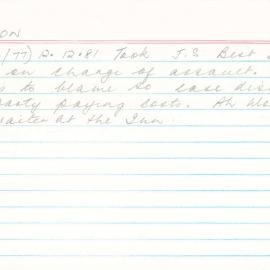 ON
/77) 12.12.81 Took J.S Best
on charge of assault.
to blame so case dis
party paying costs. Ah
waiter at the Inn.